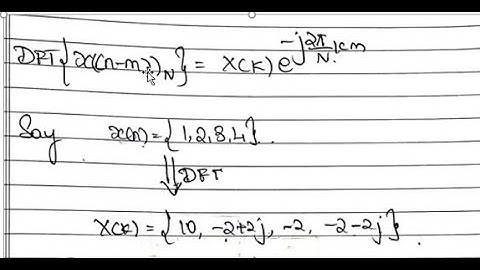 DFT{x((n-m))_N} = X(k) e^{-j\frac{2π}{N}km}
Say x(n) = {1, 2, 3, 4}.
⇓ DFT
X(k) = {10, -2+2j, -2, -2-2j}